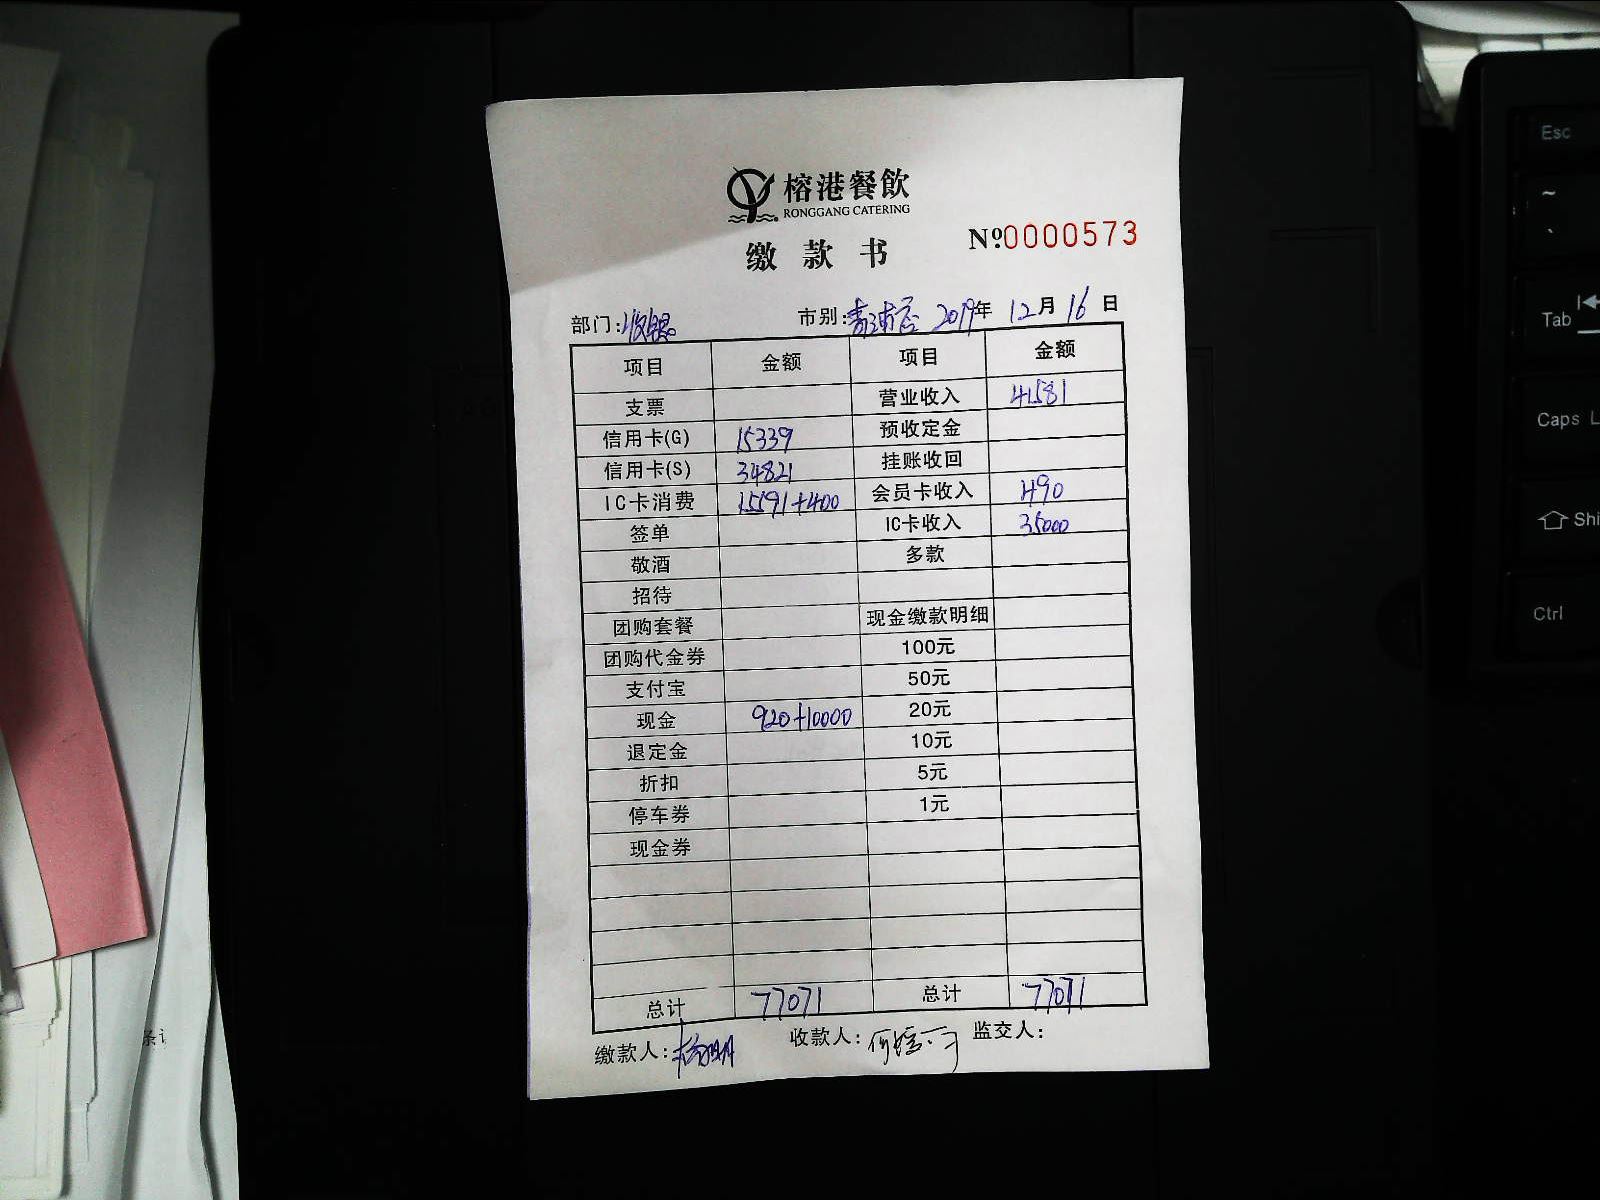 榕港餐飲
RONGGANG CATERING
缴款书
№0000573
部门:收银 市别:青浦店 2019年 12月 16日
项目 金额 项目 金额
支票 营业收入 41581
信用卡(G) 15339 预收定金
信用卡(S) 34821 挂账收回
IC卡消费 15591+400 会员卡收入 490
签单 IC卡收入 35000
敬酒 多款
招待
团购套餐 现金缴款明细
团购代金券 100元
支付宝 50元
现金 920+10000 20元
退定金 10元
折扣 5元
停车券 1元
现金券
总计 77071 总计 77071
缴款人: 收款人: 监交人:
Esc
~
Tab
Caps L
Shi
Ctrl